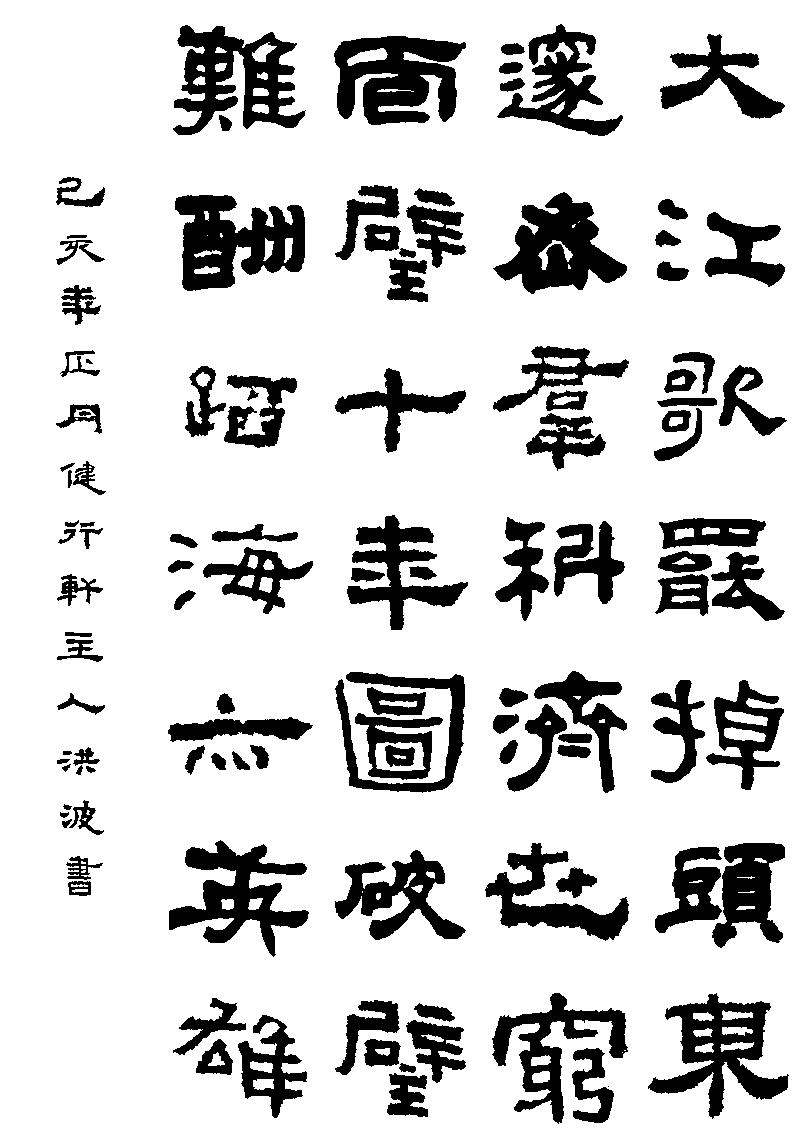 大江歌罷掉頭東
邃密羣科濟世窮
面壁十年圖破壁
難酬蹈海亦英雄
己亥年正月健行軒主人洪波書